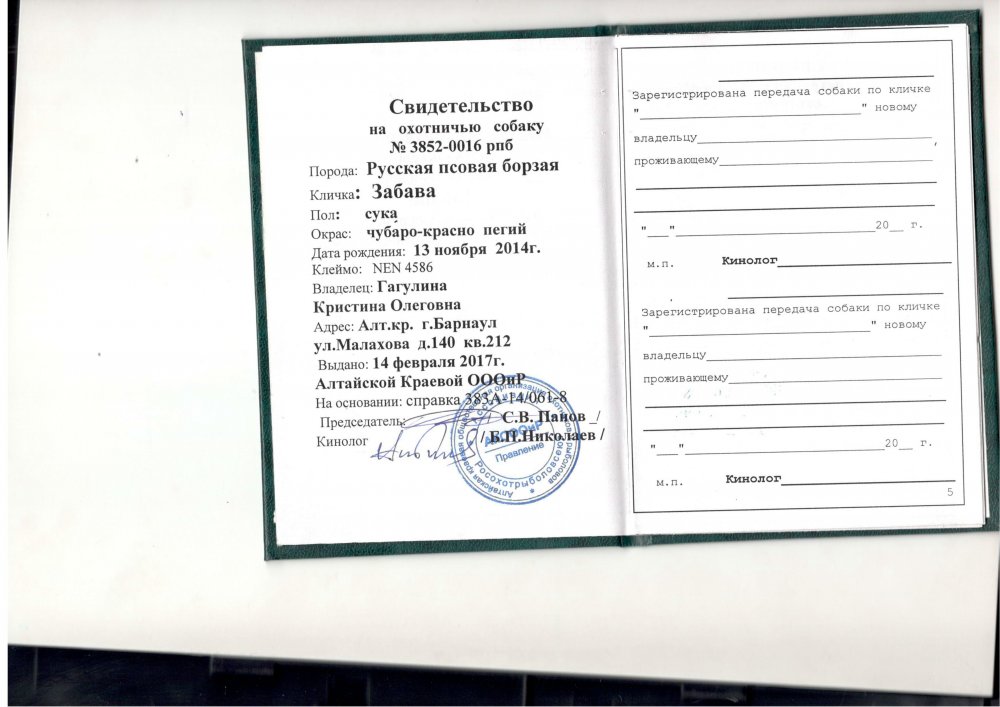 Свидетельство
на охотничью собаку
№ 3852-0016 рпб
Порода: Русская псовая борзая
Кличка: Забава
Пол: сука
Окрас: чубаро-красно пегий
Дата рождения: 13 ноября 2014г.
Клеймо: NEN 4586
Владелец: Гагулина
Кристина Олеговна
Адрес: Алт.кр. г.Барнаул
ул.Малахова д.140 кв.212
Выдано: 14 февраля 2017г.
Алтайской Краевой ОООиР
На основании: справка 383А-14/061-8
Председатель: С.В. Панов /
Кинолог / Б.П.Николаев /
Алтайская краевая общественная организация охотников и рыболовов
Правление
Росохотрыболовсоюз
Зарегистрирована передача собаки по кличке
"____" новому
владельцу____
проживающему____
"___"____20__ г.
м.п. Кинолог____
Зарегистрирована передача собаки по кличке
"____" новому
владельцу____
проживающему____
"___"____20__ г.
м.п. Кинолог____
5